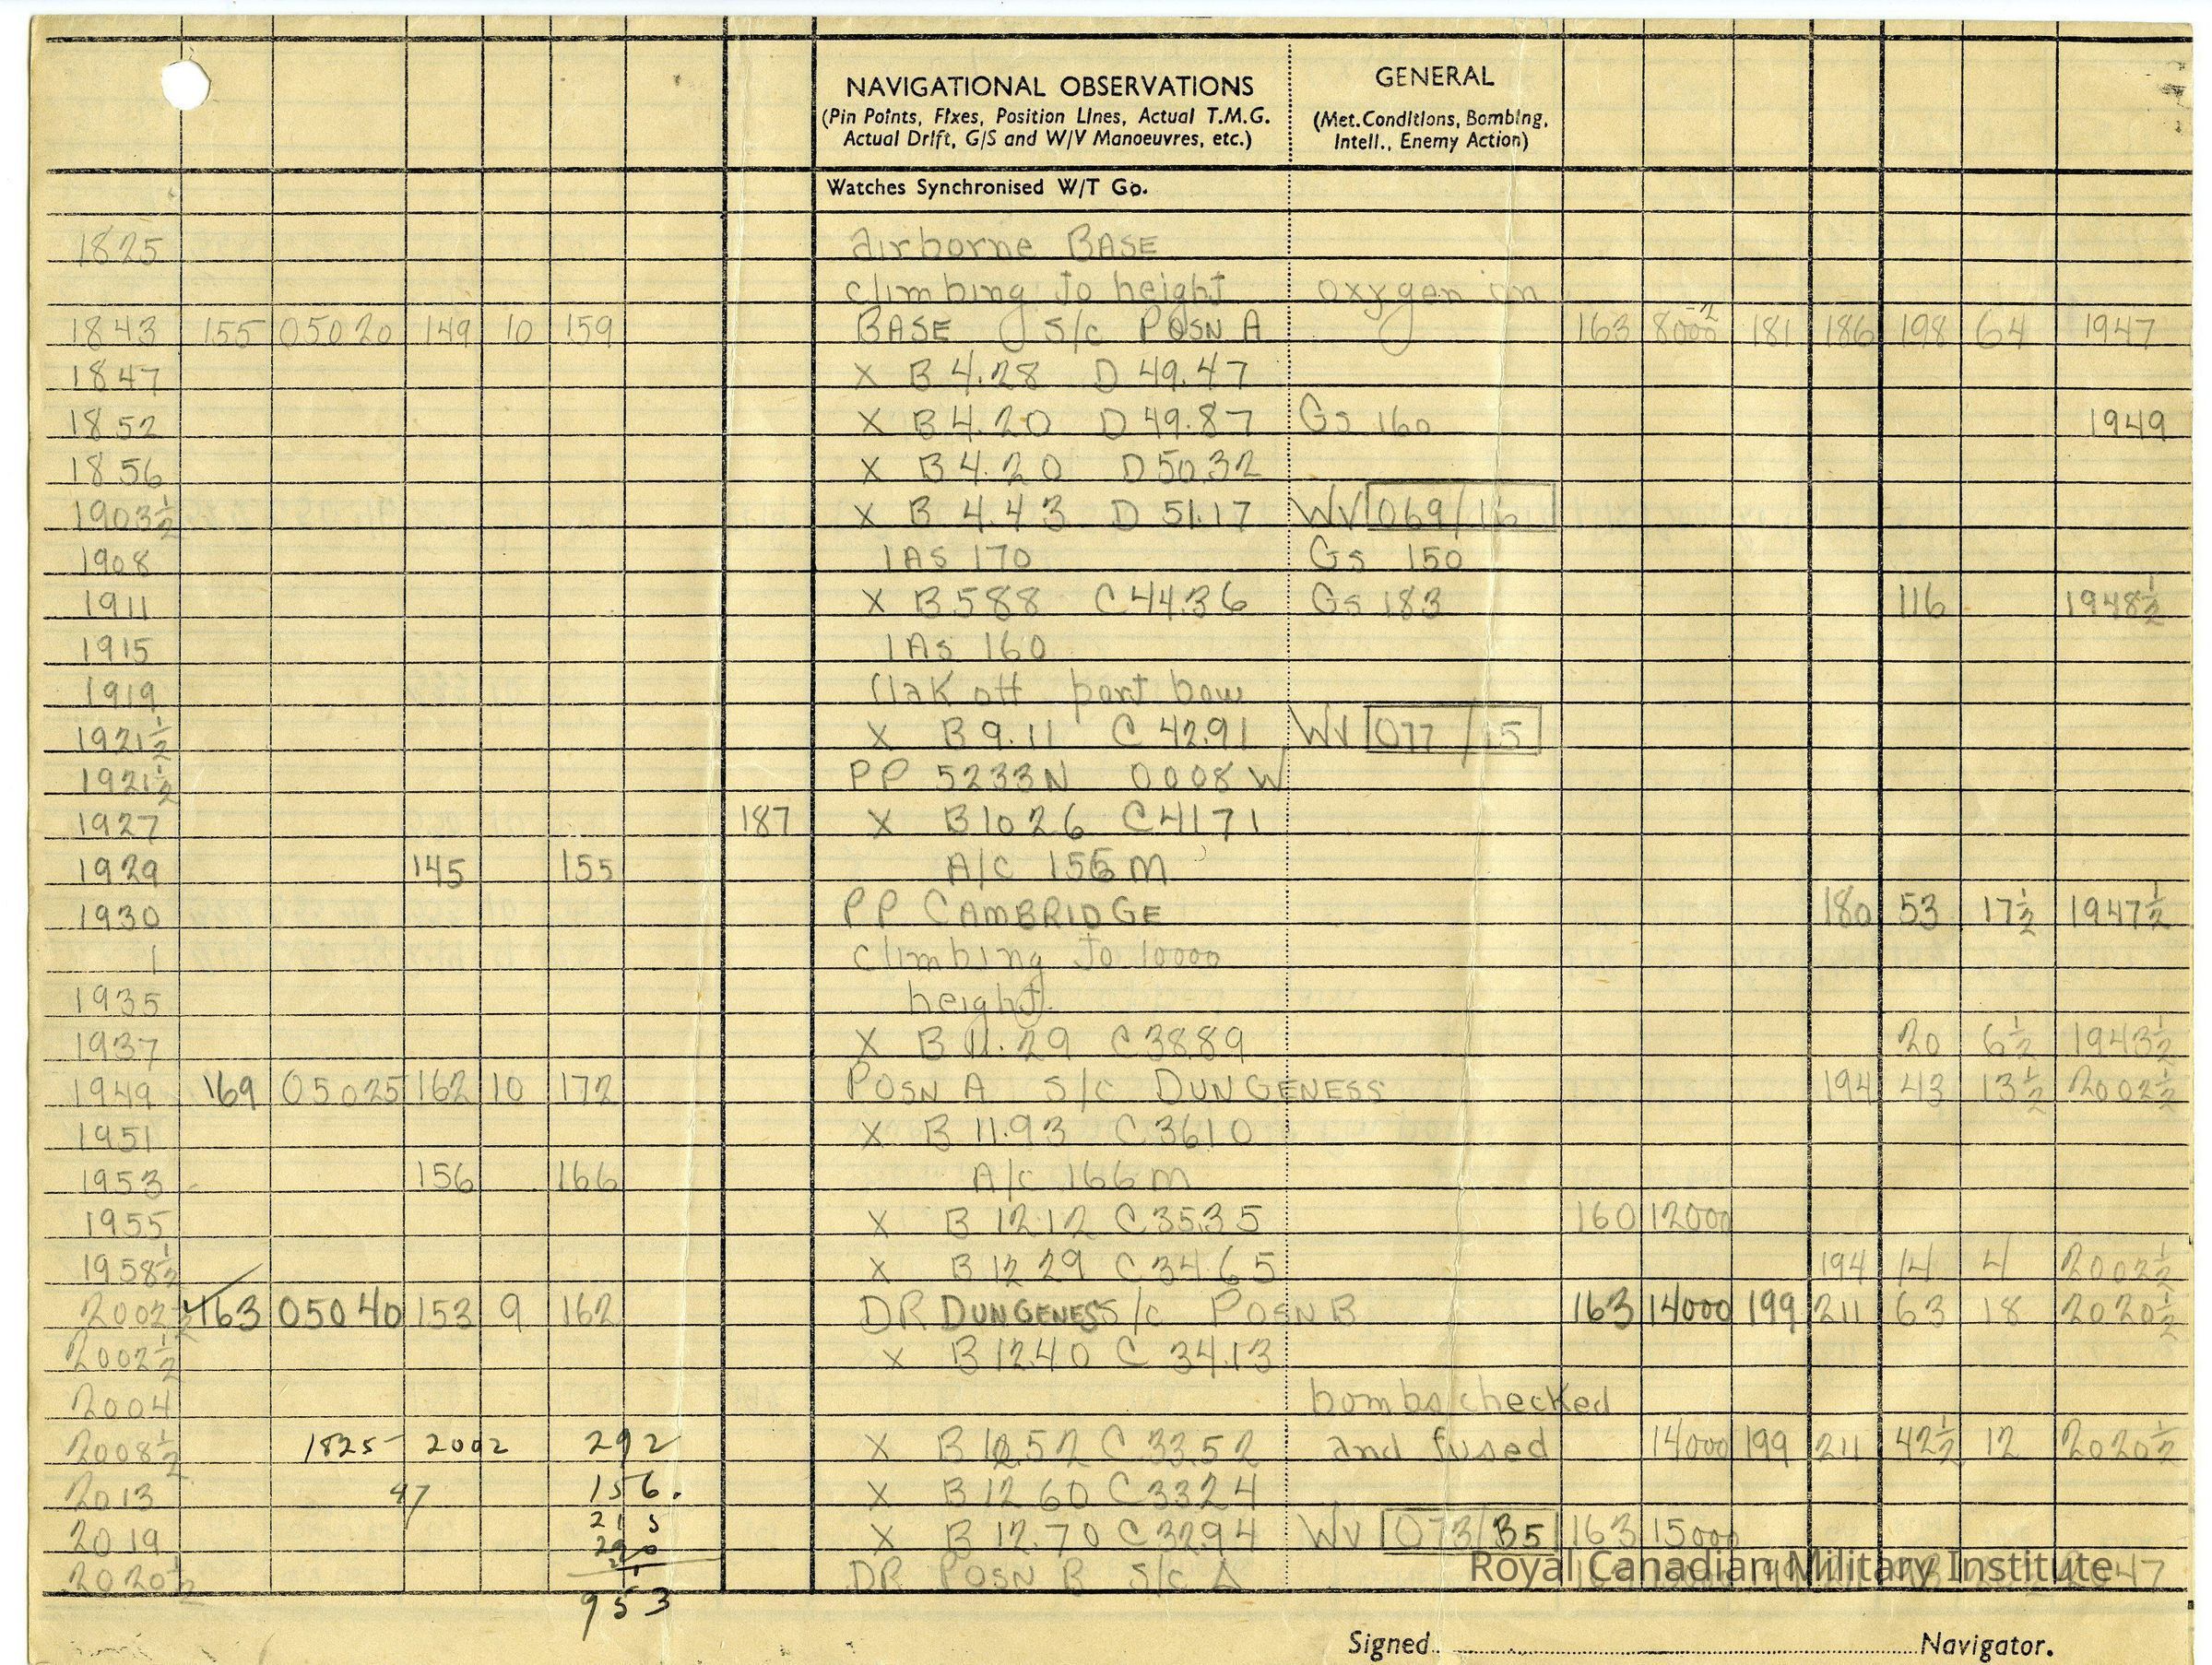 NAVIGATIONAL OBSERVATIONS
(Pin Points, Fixes, Position Lines, Actual T.M.G.
Actual Drift, G/S and W/V Manoeuvres, etc.)
GENERAL
(Met.Conditions, Bombing,
Intell., Enemy Action)
Watches Synchronised W/T Go.
1825 airborne BASE
climbing to height oxygen on
1843 155 05020 149 10 159 BASE S/C POSN A 163 8000 -2 181 186 198 64 1947
1847 X B 4.28 D 49.47
1852 X B 4.20 D 49.87 Gs 160 1949
1856 X B 4.20 D 50.32
1903½ X B 4.43 D 51.17 WV 069/16
1908 IAS 170 Gs 150
1911 X B 5.88 C 44.36 Gs 183 116 1948½
1915 IAS 160
1919 flak off port bow
1921½ X B 9.11 C 42.91 WV 077/15
1921½ PP 5233N 0008W
1927 187 X B 10 26 C 41 71
1929 145 155 A/C 155 M
1930 PP CAMBRIDGE 180 53 17½ 1947½
1 climbing to 10000
1935 height.
1937 X B 11.29 C 38.89 20 6½ 1943½
1949 169 05025 162 10 172 POSN A S/C DUNGENESS 194 43 13½ 2002½
1951 X B 11.93 C 36.10
1953 156 166 A/C 166 M
1955 X B 12.12 C 35.35 160 12000
1958½ X B 12 29 C 34.65 194 14 4 2002½
2002½ 163 05040 153 9 162 DR DUNGENESS S/C POSN B 163 14000 199 211 63 18 2020½
2002½ X B 12.40 C 34.13
2004 bombs checked
2008½ 1825 - 2002 292 X B 12.52 C 33.52 and fused 14000 199 211 42½ 12 2020½
2013 97 156. X B 12 60 C 33 24
2019 215 X B 12.70 C 32.94 WV 073/35 163 15000
2020½ DR POSN B S/C 2047
953
Royal Canadian Military Institute
Signed Navigator.